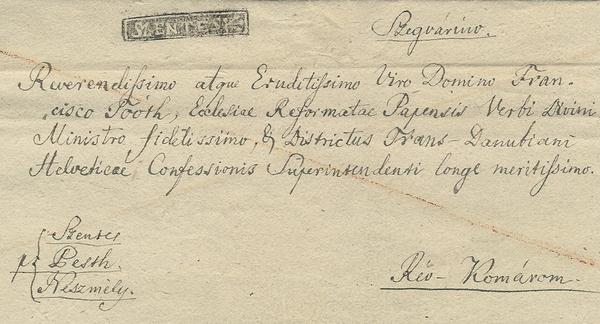 SZENTES
Szegvárúro.
Reverendissimo atque Eruditissimo Viro Domino Fran-
cisco Tóóth, Ecclesiae Reformatae Papensis Verbi Divini
Ministro fidelissimo, & Districtus Trans-Danubiani
Helveticae Confessionis Superintendenti longe meritissimo.
Szentes
pr Pesth.
Neszmély.
Rév-Komarom.